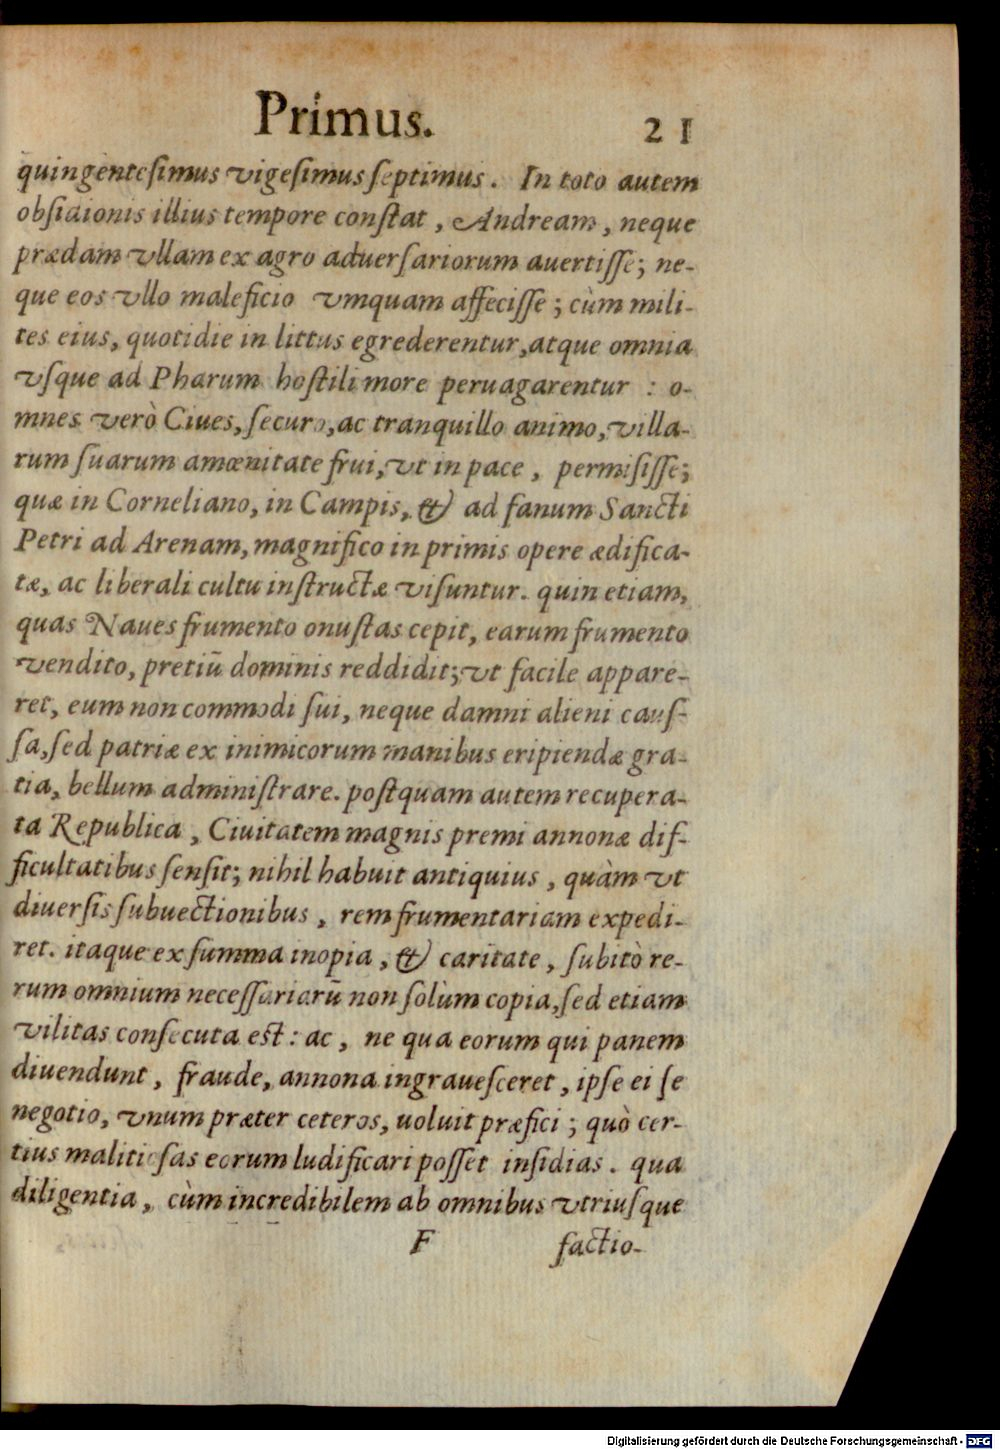 Primus. 21
quingentesimus vigesimus septimus. In toto autem
obsidionis illius tempore constat, Andream, neque
prædam vllam ex agro aduersariorum auertisse; ne-
que eos vllo maleficio vmquam affecisse; cùm mili-
tes eius, quotidie in littus egrederentur, atque omnia
vsque ad Pharum hostili more peruagarentur : o-
mnes verò Ciues, securo, ac tranquillo animo, villa-
rum suarum amœnitate frui, vt in pace, permisisse;
quæ in Corneliano, in Campis, & ad fanum Sancti
Petri ad Arenam, magnifico in primis opere ædifica-
tæ, ac liberali cultu instructæ visuntur. quin etiam,
quas Naues frumento onustas cepit, earum frumento
vendito, pretiũ dominis reddidit; vt facile appare-
ret, eum non commodi sui, neque damni alieni caus-
sa, sed patriæ ex inimicorum manibus eripiendæ gra-
tia, bellum administrare. postquam autem recupera-
ta Republica, Ciuitatem magnis premi annonæ dif-
ficultatibus sensit; nihil habuit antiquius, quàm vt
diuersis subuectionibus, rem frumentariam expedi-
ret. itaque ex summa inopia, & caritate, subitò re-
rum omnium necessariarũ non solùm copia, sed etiam
vilitas consecuta est: ac, ne qua eorum qui panem
diuendunt, fraude, annona ingrauesceret, ipse ei se
negotio, vnum præter ceteros, uoluit præfici; quò cer-
tius malitiosas eorum ludificari posset insidias. qua
diligentia, cùm incredibilem ab omnibus vtriusque
F factio-
Digitalisierung gefördert durch die Deutsche Forschungsgemeinschaft - DFG